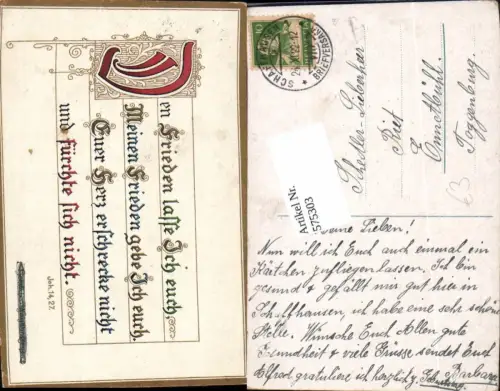 Den Frieden lasse Ich euch
Meinen Frieden gebe Ich euch.
Euer Herz erschrecke nicht
und fürchte sich nicht.
Joh. 14, 27.
10
SCHAFFHAUSEN
BRIEFVERSAND
Artikel Nr.
575303
Riet
Ennetbühl
Toggenburg
63
Meine Lieben!
Nun will ich Euch auch einmal ein
Kärtchen zufliegen lassen. Ich bin
gesund & gefällt mir gut hier in
Schaffhausen, ich habe eine sehr schöne
Stelle. Wünsche Euch Allen gute
Gesundheit & viele Grüsse sendet Euch
Alfred gratuliere ich herzlich z. Barbara